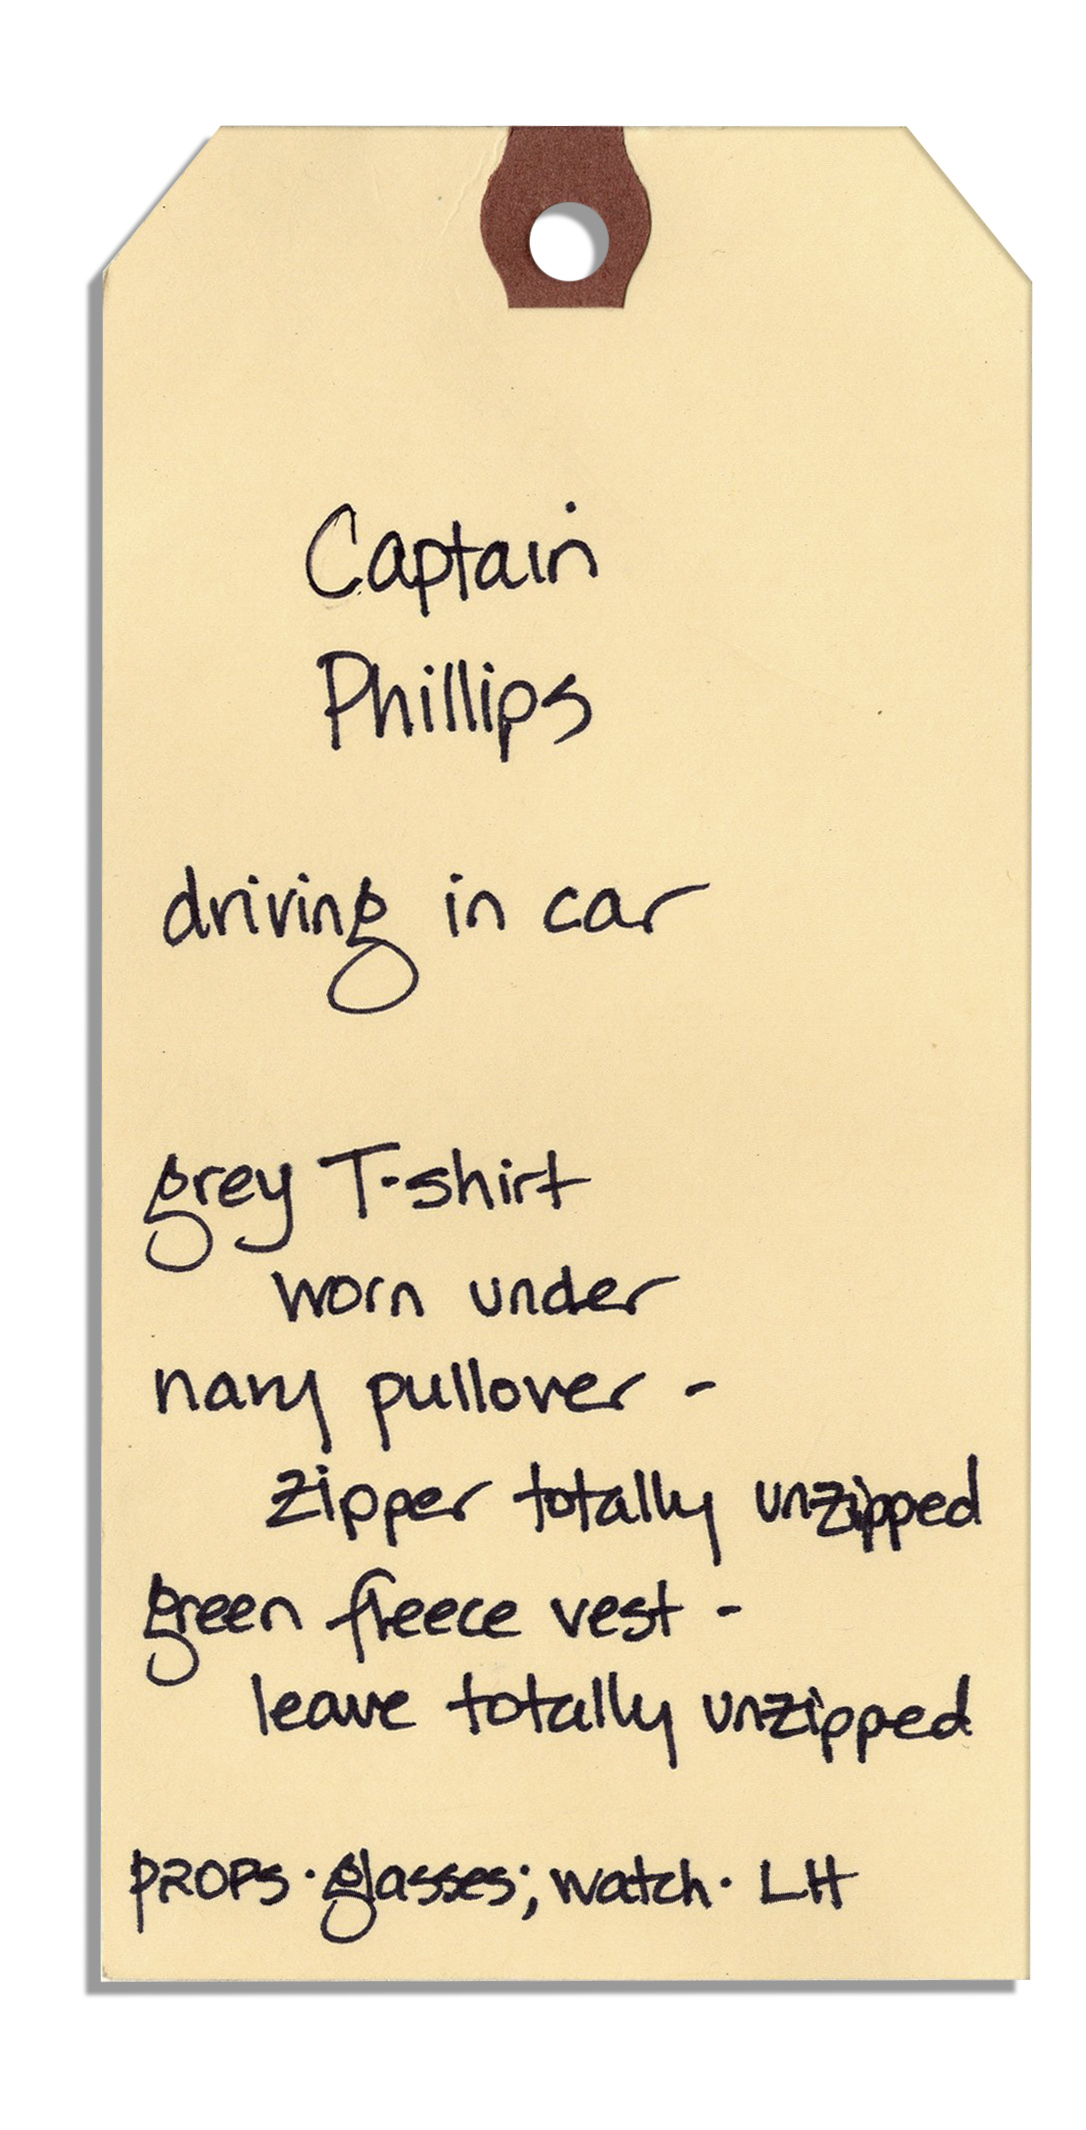 Captain
Phillips
driving in car
grey T-shirt
worn under
navy pullover -
zipper totally unzipped
green fleece vest -
leave totally unzipped
PROPS · glasses; watch · LH